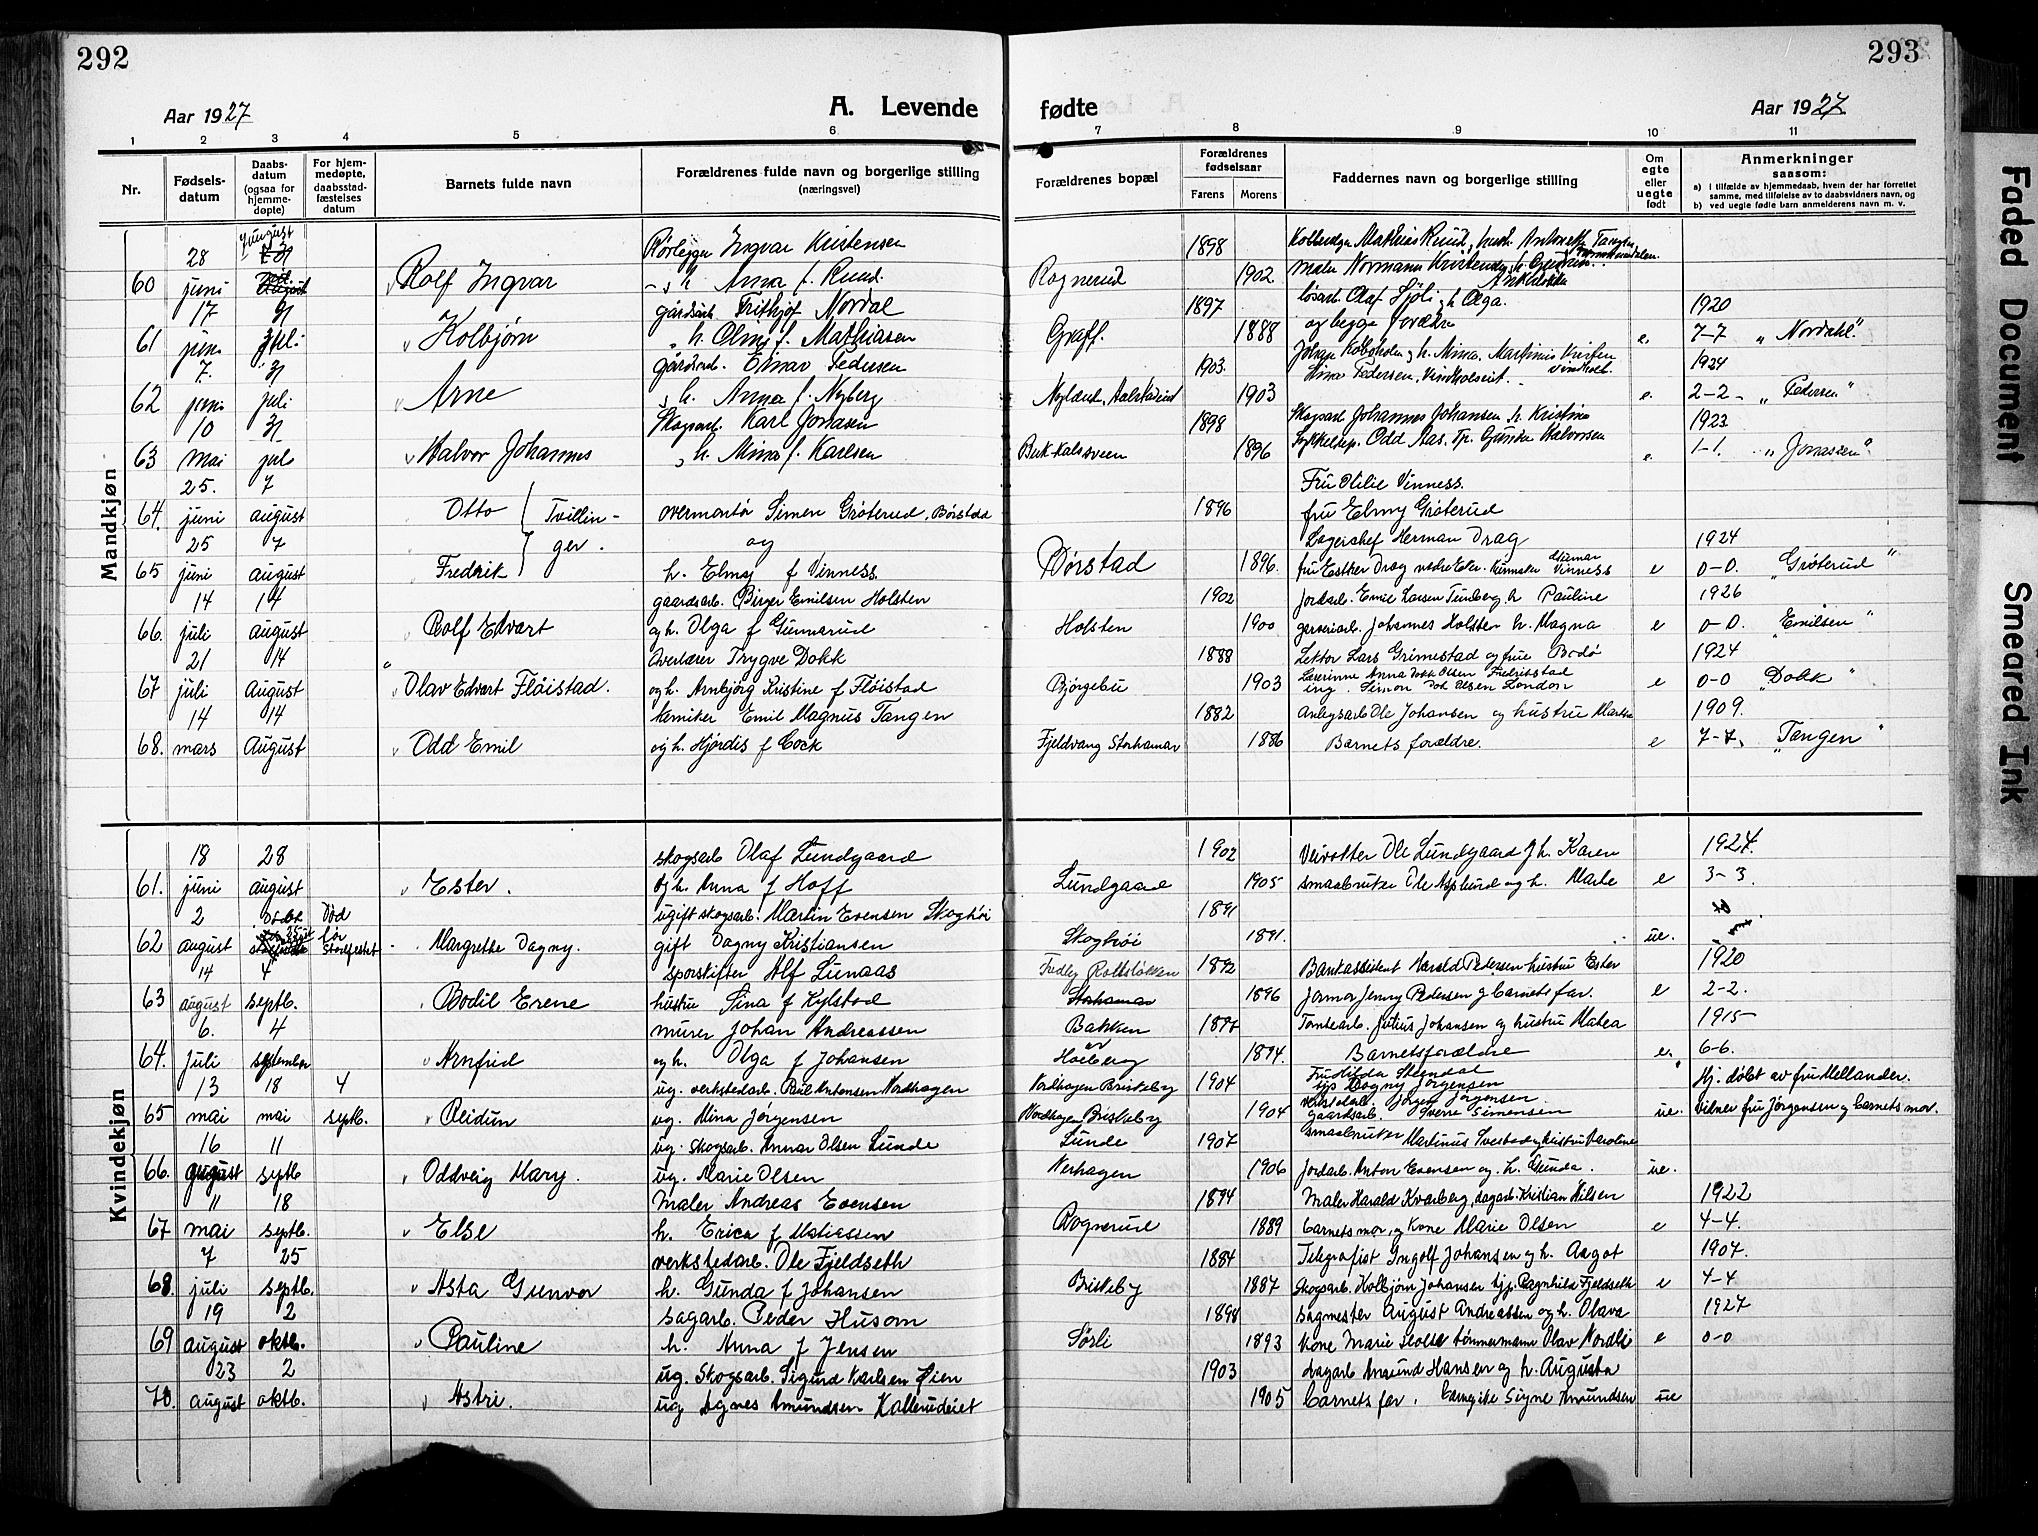 292
293
Aar 1927
A. Levende
fødte
Aar 1927
1 2 3 4 5 6 7 8 9 10 11
Nr.
Fødsels-
datum
Daabs-
datum
(ogsaa for
hjemme-
døpte)
For hjem-
medøpte,
daabsstad-
fæstelses
datum
Barnets fulde navn
Forældrenes fulde navn og borgerlige stilling
(næringsvei)
Forældrenes bopæl
Forældrenes
fødselsaar
Farens Morens
Faddernes navn og borgerlige stilling
Om
egte
eller
uegte
født
Anmerkninger
saasom:
a) i tilfælde av hjemmedaab, hvem der har forrettet
samme, med tilføielse av to daabsvidners navn, og
b) ved uegte fødte barn anmelderens navn m. v.
Mandkjøn
28 Rørlegger Ingvar Kristensen 1898
60 juni Rolf Ingvar h. Anna f. Ruud Rognerud 1902
17 31 gårdsarb. Frithjof Nordal 1897 løsarb. Olaf Sjøli, h. Olga. 1920
61 juni juli Kolbjørn h. Olmi f. Mathiasen Graff. 1888 og begge foreldre e. 7-7 "Nordahl"
7. 31 gårdsarb. Einar Pedersen 1903 1924
62 juni juli Arne h. Anna f. Nyberg 1903 e. 2-2 "Pedersen"
10 31 Skogsarb. Karl Jonasen 1898 Skogsarb. Johannes Johansen h. Kristine 1923
63 mai juli Halvor Johannes h. Mina f. Karlsen 1896 e. 1-1. "Jonassen"
25. 7 Fru Otilie Vinness.
64. juni august Otto Tvillin- overmontør Simen Grøterud, Børstad 1896 fru Elmy Grøterud
25 7 ger. og Lagerchef Herman Drag 1924
65 juni august Fredrik h. Elmy f Vinness. Børstad 1896. fru Esther Drag Vinness e 0-0. "Grøterud"
14 14 gaardsarb. Birger Emilsen Holsten 1902 Jordarb. Emil Larsen Tunberg h Pauline 1926
66. juli august Rolf Edvart og h. Olga f Gunnarud Holsten 1900 garveriarb. Johannes Holsten h. Magna e 0-0. "Emilsen"
21 14 Overlærer Trygve Dokk 1888 Lektor Lars Grimestad og frue Bodø 1924
67 juli August Olav Edvart Fløistad. og h. Arnbjørg Kristine f Fløistad Bjørgebu 1903 ing. Simon Dok Olsen London e 0-0 "Dokk"
14 14 kemiker Emil Magnus Tangen 1882 Anlegsarb. Ole Johansen og hustru Marthe 1909.
68. mars August Odd Emil og h. Hjørdis f Cock Fjeldvang Storhamar 1886 Barnets forældre. e 7-7. "Tangen"
Kvindekjøn
18 28 skogsarb Olaf Lundgaard 1902 Veivokter Ole Lundgaard og h. Karen 1927.
61. juni august Ester. og h. Anna f Hoff Lundgaard 1905 smaabruker Ole Asplund og h. Marte e 3-3.
2 Død ugift skogsarb. Martin Evensen Skoghøi 1891
62 august før Margrethe Dagny. gift Dagny Kristiansen Skoghøi 1891. ue.
14 4 sporskifter Alf Lunaas 1892 Bankassistent Harald Pedersen hustru Ester 1920
63 august septb. Bodil Erene hustru Sina f Kylstad Storhamar 1896 Jormor Jenny Pedersen og barnets far. e 2-2.
6. 4 murer Johan Andreassen Bakken 1897 Tomtearb. Julius Johansen og hustru Matea 1915
64. juli september Arnfrid og h. Olga f Johansen Høiberg 1894. Barnets forældre e. 6-6.
13 18 4 ug. verkstedarb. Paul Antonsen Nordhagen Nordhagen Briskeby 1904 Fru Hilda Stendal Hj. døbt av fru Mellander.
65 mai mai septb. Reidun ug. Mina Jørgensen Nordhagen Briskeby 1904 gaardsarb. Sverre Simensen ue. Vidner fru Jørgensen og barnets mor.
16 11 ug. skogsarb. Annar Olsen Lunde Lunde 1907
66. august septb Oddveig Mary. ug. Marie Olsen Nerhagen 1906 Jordarb. Anton Evensen og h. Gunda. ue.
11 18 Maler Andreas Evensen 1894 Maler Harald Kvarberg, dagarb. Kristian Nilsen 1922
67 mai septb. Else h. Erica f Matiassen Rognerud 1889 barnets mor og Kone Marie Olsen e 4-4.
7 25 verkstedarb. Ole Fjeldseth 1884 Telegrafist Ingolf Johansen og h. Aagot 1907.
68. juli septb. Asta Gunvor h. Gunda f Johansen Briskeby 1887 skogsarb. Kolbjørn Johansen tjp. Ragnhild Fjeldseth e 4-4
19 2 sagarb. Peder Husom 1898 sagmester August Andreassen og h. Olava 1927
69 august oktb. Pauline h. Anna f Jensen Sørli 1893 Kone Marie Holst tømmermann Olav Nordli e 0-0
23 2 ug. skogsarb. Sigurd Karlsen Øien 1903 dagarb. Amund Hansen og h. Augusta
70. august oktb. Astri. ug. Agnes Amundsen Kallerudeiet 1905 barnets far. Signe Amundsen ue
Faded Document
Smeared Ink